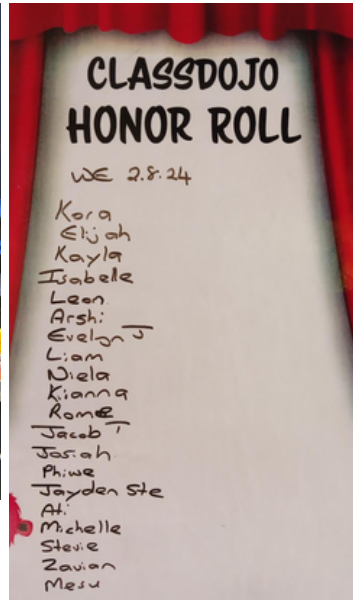 CLASSDOJO
HONOR ROLL
WE 2.8.24
Kora
Elijah
Kayla
Isabelle
Leon
Arshi
Evelyn J
Liam
Niela
Kianna
Rome
Jacob T
Josiah
Phiwe
Jayden Ste
Ati
Michelle
Stevie
Zavian
Mesu